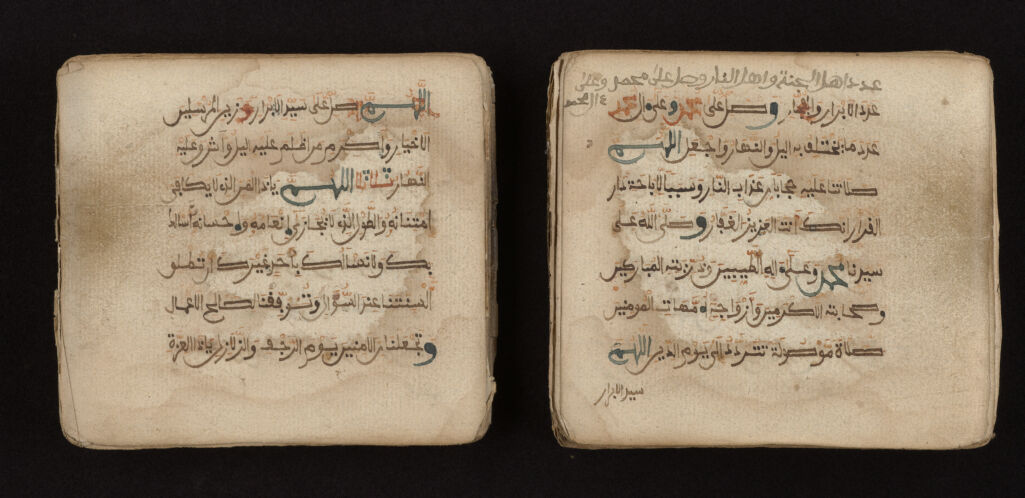 عدد اهل الجنة واهل النار وصل على محمد وعلى
ءال محمد
عدد الابرار والفجار وصل على محمد وعلى ءال محمد
عدد ما يختلف به اليل والنهار واجعل اللهم
صلاتنا عليه حجابا من عذاب النار وسببا لاباحة دار
القرار انك انت العزيز الغفار وصلى الله على
سيدنا محمد وعلى ءاله الطيبين وذريته المباركين
وصحابته الاكرمين وازواجه امهات المومنين
صلاة موصولة تتردد الى يوم الدين اللهم
سيد الابرار
اللهم صل على سيد الابرار وزين المرسلين
الاخيار واكرم من اظلم عليه اليل واشرق عليه
النهار ثلاثا اللهم ياذا المن الذي لا يكافى
امتنانه والطول الذي لا يجازى انعامه واحسانه نسالك
بك ولا نسالك باحد غيرك ان تطلق
السنتنا عند السؤال وتوفقنا لصالح الاعمال
وتجعلنا من الامنين يوم الرجف والزلازل ياذا العزة